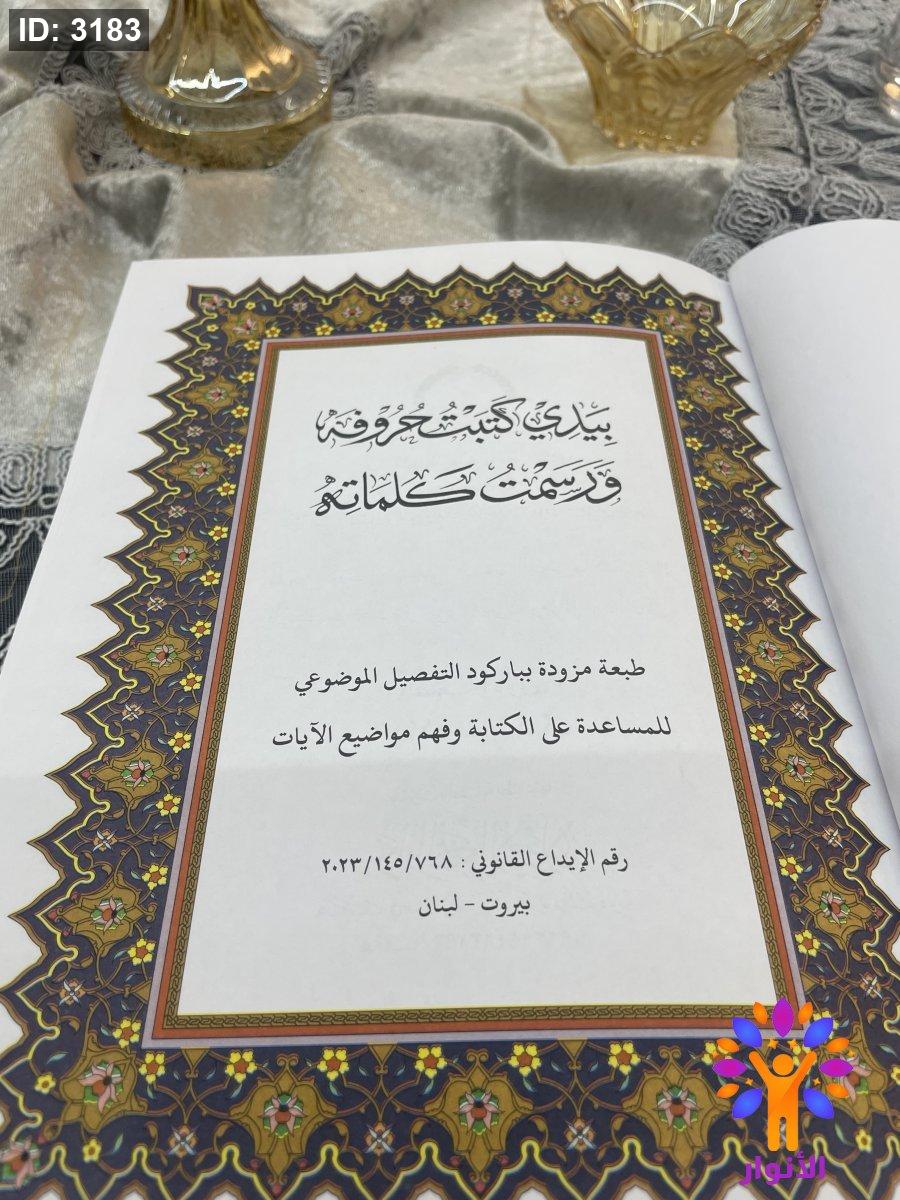 ID: 3183
بِيَدِيْ كَتَبْتُ حُرُوْفَهُ
وَرَسَمْتُ كَلِمَاتِهِ
طبعة مزودة بباركود التفصيل الموضوعي
للمساعدة على الكتابة وفهم مواضيع الآيات
رقم الإيداع القانوني : ٢٠٢٣/١٤٥/٧٦٨
بيروت - لبنان
الأنوار